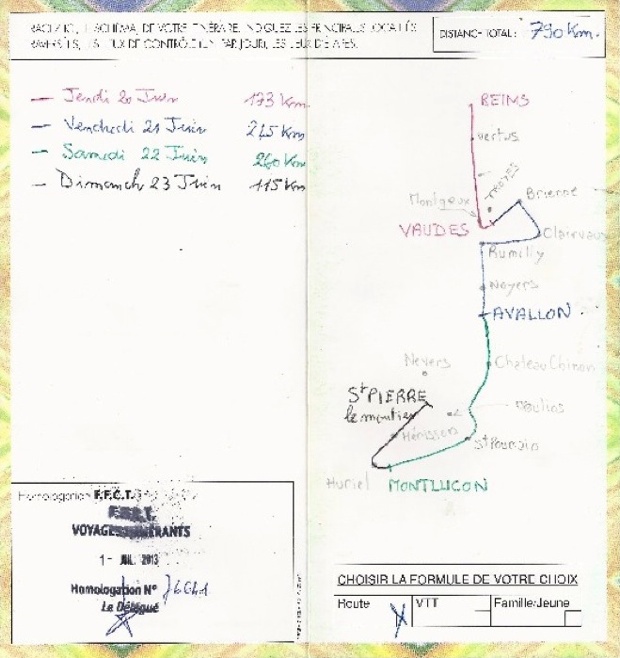 TRACEZ ICI, LE SCHÉMA, DE VOTRE ITINÉRAIRE. INDIQUEZ LES PRINCIPALES LOCALITÉS
TRAVERSÉES, LIEUX DE CONTRÔLE (UN PAR JOUR), LES LIEUX D'ÉTAPES.
DISTANCE TOTALE : 790 Km.
— Jeudi 20 Juin 173 Km
— Vendredi 21 Juin 245 Km
— Samedi 22 Juin 260 Km
— Dimanch 23 Juin 115 Km
REIMS
Vertus
TROYES
Brienne
Montgeux
VAUDES
Clairvaux
Rumilly
Noyers
AVALLON
Nevers
Chateau Chinon
St PIERRE
le moutier
Moulins
Hérisson
St Pourçain
Huriel
MONTLUCON
Homologation F.F.C.T.
F.F.C.T.
VOYAGES ITINÉRANTS
1- JUIL. 2013
Homologation N°
Le Délégué
CHOISIR LA FORMULE DE VOTRE CHOIX
Route X VTT Famille/Jeune